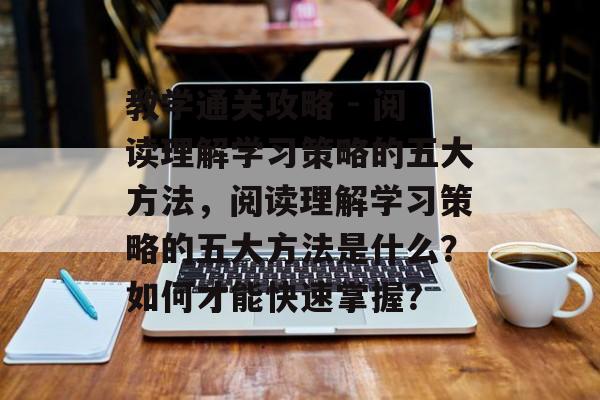 教学通关攻略 - 阅
读理解学习策略的五大
方法，阅读理解学习策
略的五大方法是什么？
如何才能快速掌握？